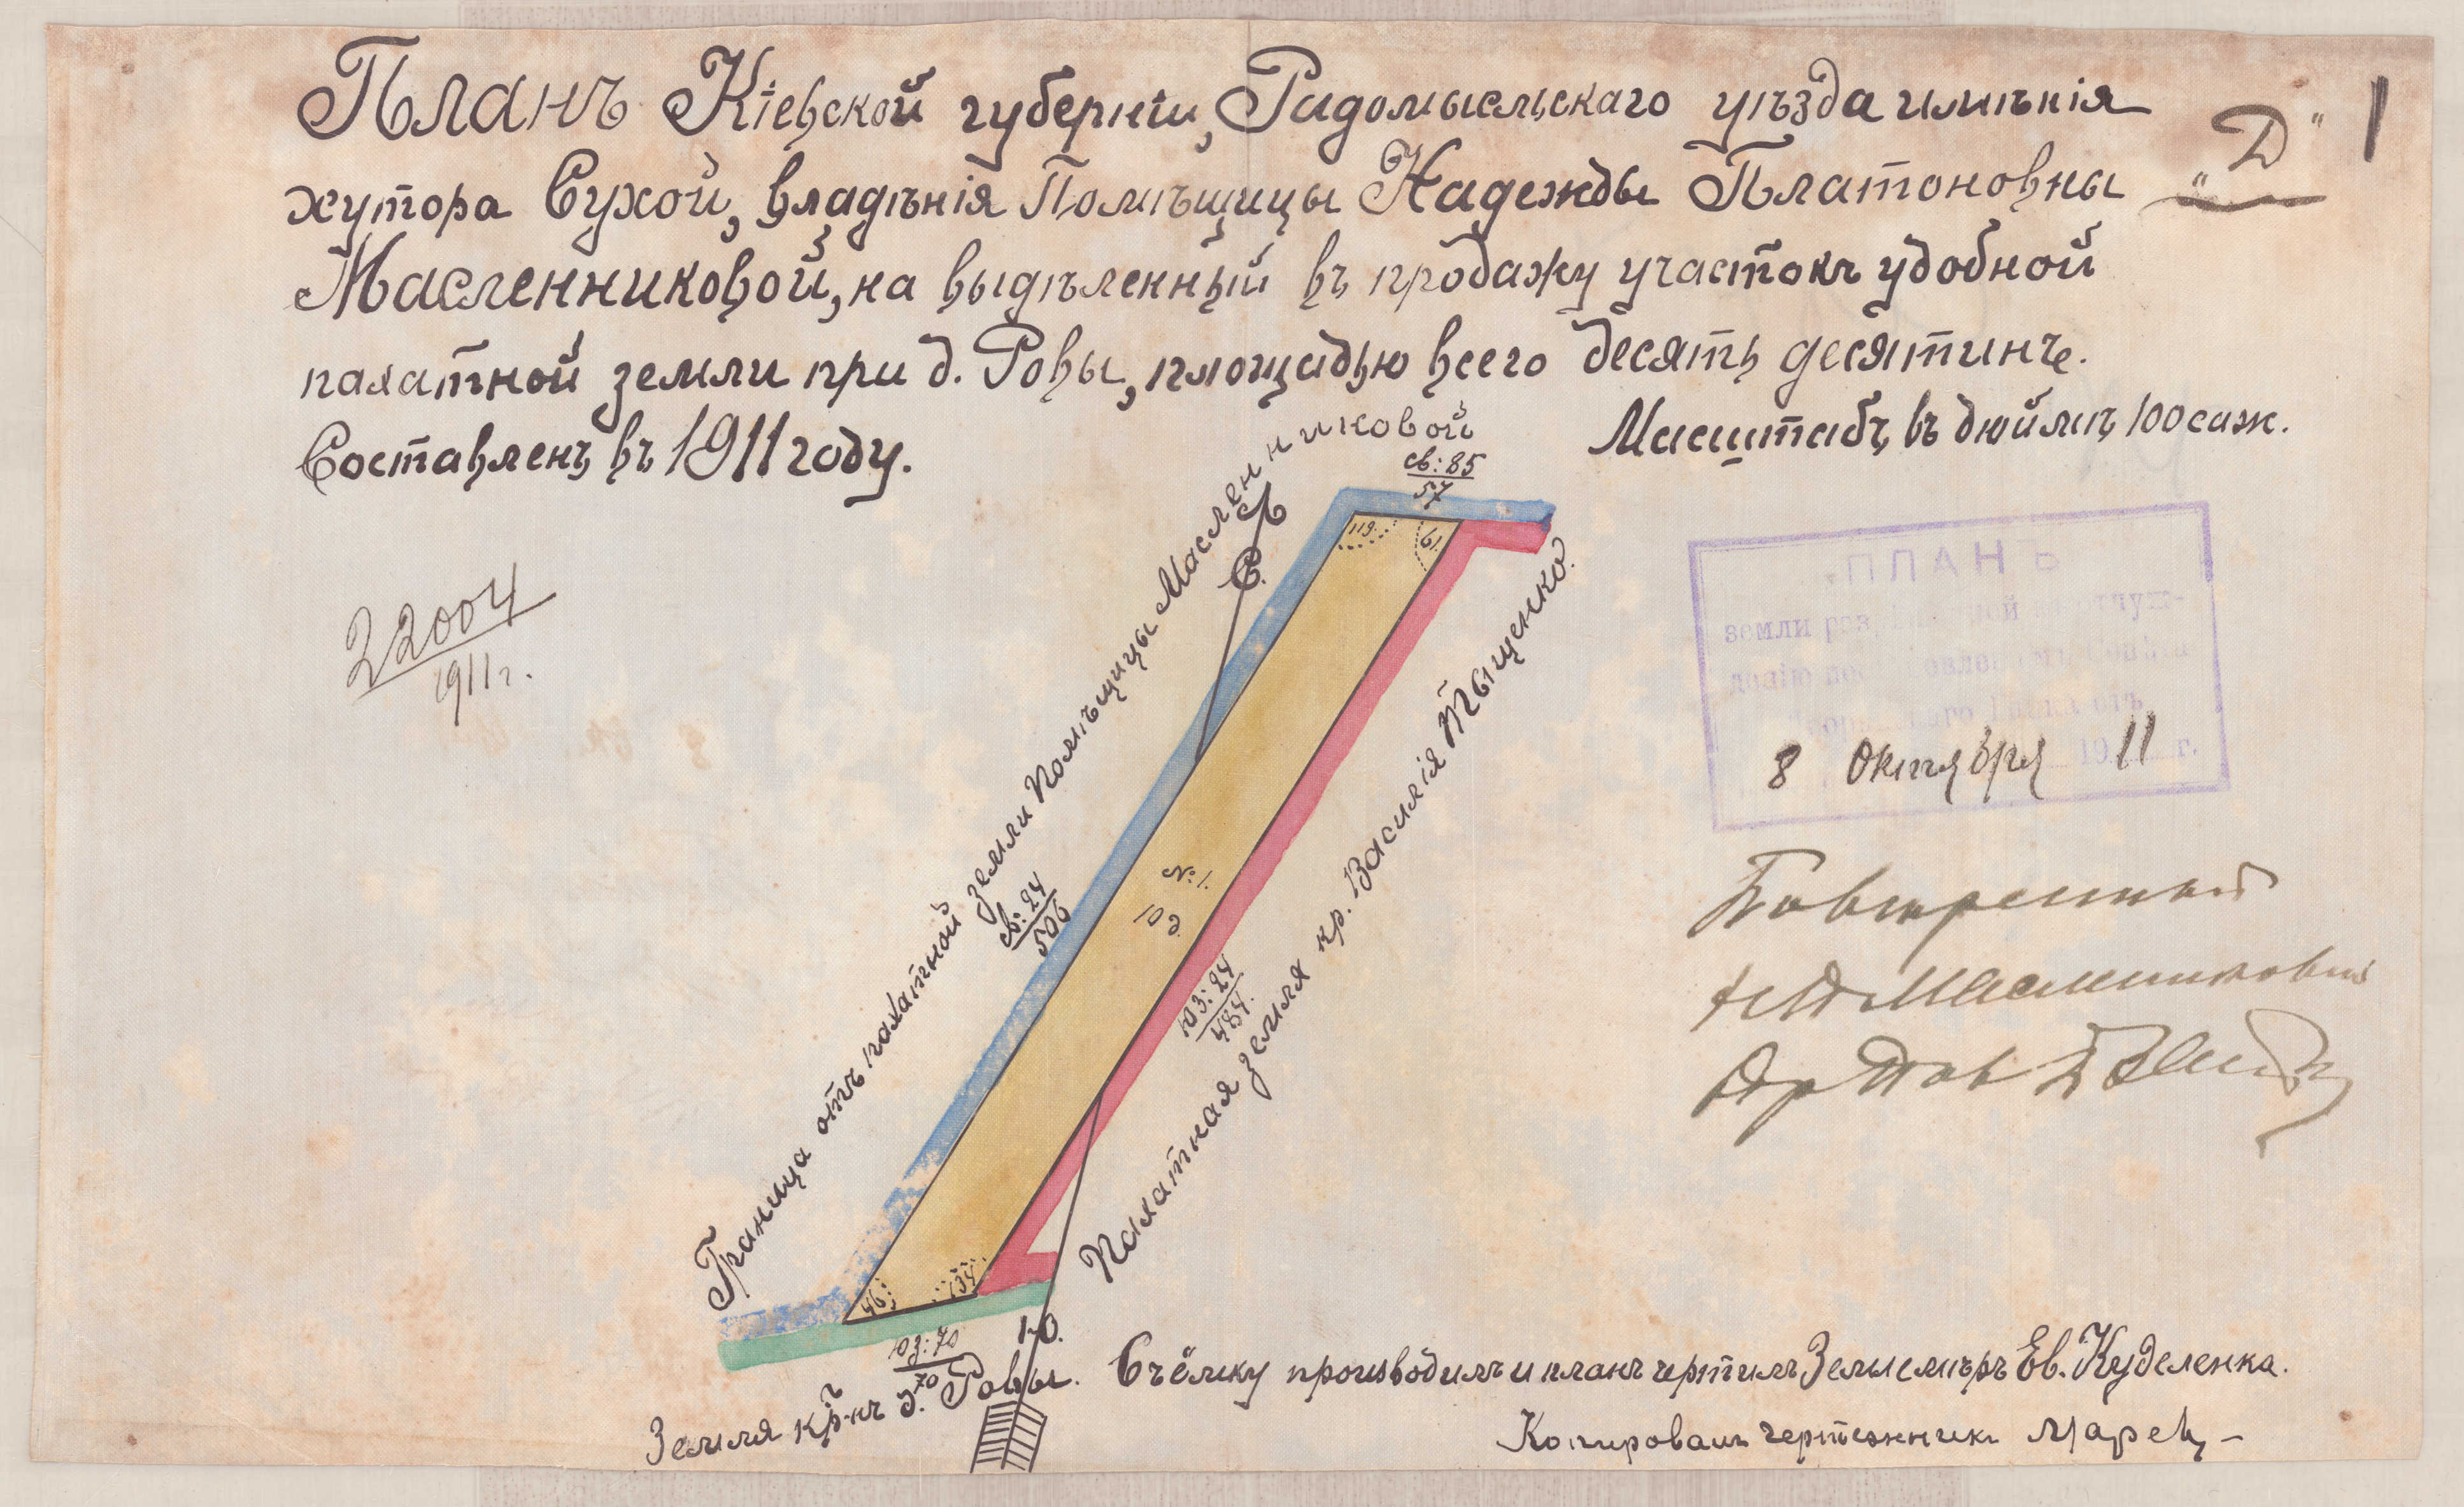 Планъ Кіевской губерніи, Радомысльскаго уѣзда имѣнія
хутора Сухой, владѣнія Помѣщицы Надежды Платоновны
Масленниковой, на выдѣленный въ продажу участокъ удобной
пахатной земли при д. Ровы, площадью всего десять десятинъ.
Составленъ въ 1911 году.
Масштабъ въ дюймѣ 100 саж.
„Д“
1
22004
1911 г.
Граница отъ пахатной земли Помѣщицы Масленниковой
С.
св: 85
57
119.
61.
св: 24
506
№ 1.
10
юз: 24
484.
Пахатная земля кр. Василія Тыщенко.
46
134
юз: 70
70
Ю.
Земля кр-нъ д. Ровы.
ПЛАНЪ
земли
8 Октября 1911 г.
Съёмку производилъ и планъ чертилъ Землемѣръ Ев. Куделенка.
Копировалъ чертежникъ